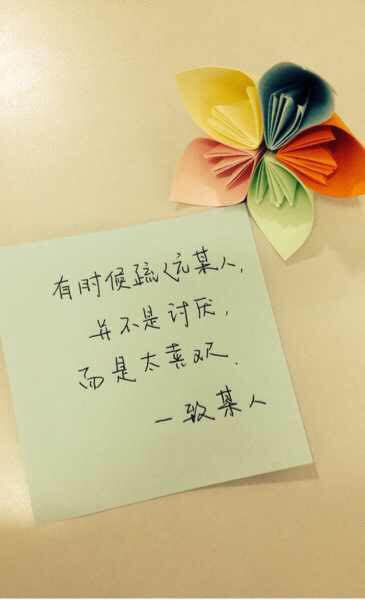 有时候疏远某人,
并不是讨厌,
而是太喜欢.
—致某人